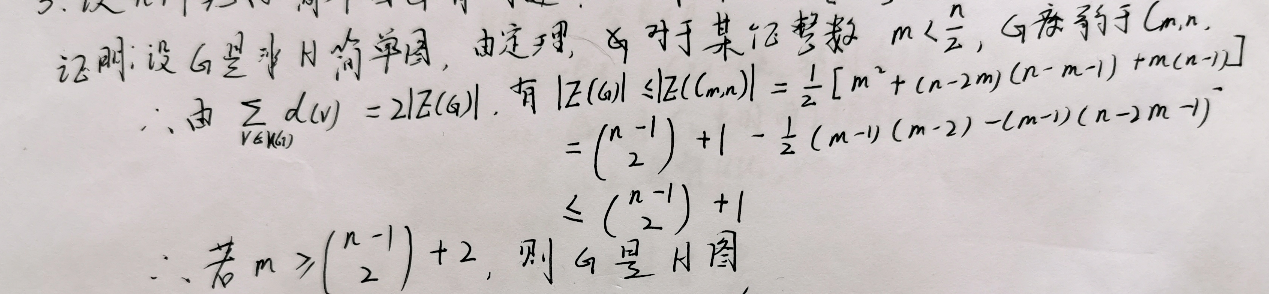 证明:设G是非H简单图,由定理,G对于某个整数 m<n/2, G度弱于Cm,n.
∴由 ∑_{v∈V(G)} d(v) = 2|E(G)|. 有 |E(G)| ≤ |E(Cm,n)| = 1/2 [m²+(n-2m)(n-m-1)+m(n-1)]
= (n-1 2) + 1 - 1/2 (m-1)(m-2) - (m-1)(n-2m-1)
≤ (n-1 2) + 1
∴若 m ≥ (n-1 2) + 2, 则 G是H图